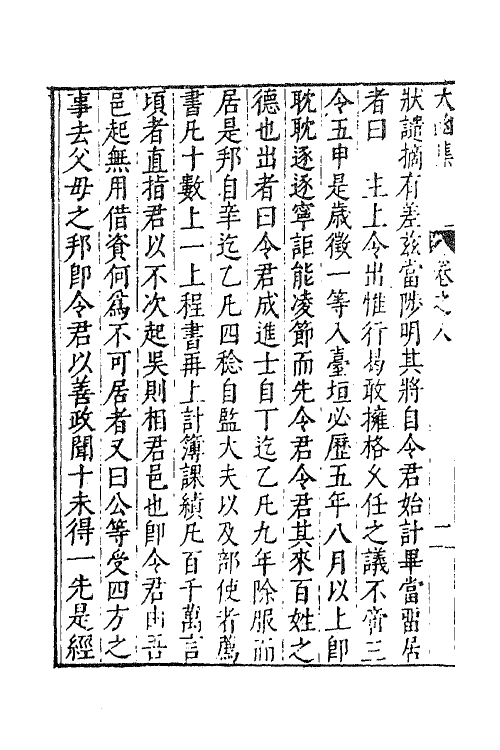 大函集 卷之八 二
狀譴摘有差茲當陟明其將自令君始計畢當留居
者曰 主上令出惟行曷敢擁格久任之議不啻三
令五申是歲徵一等入臺垣必歷五年八月以上卽
耽耽逐逐寧詎能凌節而先令君令君其來百姓之
德也出者曰令君成進士自丁迄乙凡九年除服而
居是邦自辛迄乙凡四稔自監大夫以及部使者薦
書凡十數上一上程書再上計簿課績凡百千萬言
頃者直指君以不次起吳則相君邑也卽令君由吾
邑起無用借資何爲不可居者又曰公等受四方之
事去父母之邦卽令君以善政聞十未得一先是經